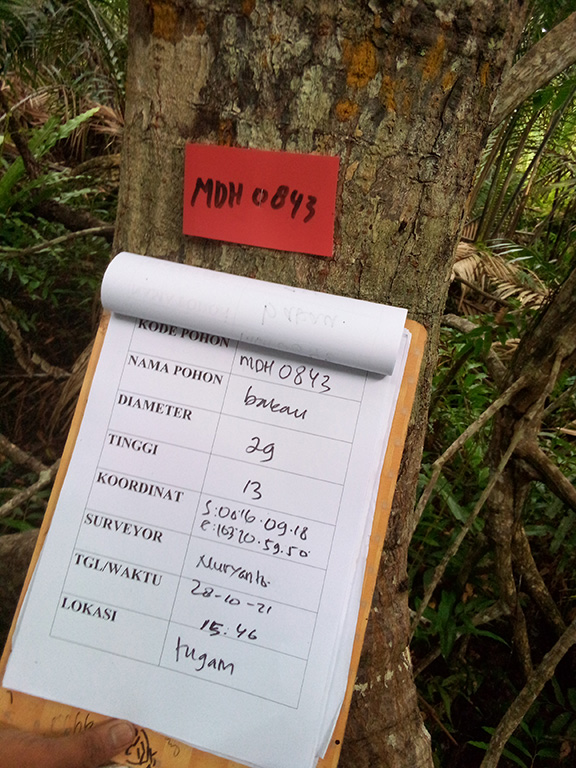 MDH 0843
KODE POHON MDH 0843
NAMA POHON bakau
DIAMETER 29
TINGGI 13
KOORDINAT S:0016.09.18
SURVEYOR Nuryanto
TGL/WAKTU 28-10-21
15:46
LOKASI tugam